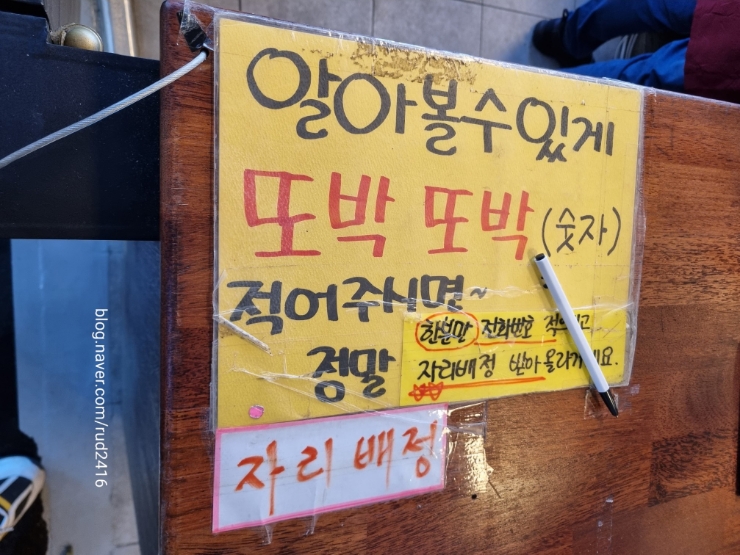 알아볼수있게
또박 또박 (숫자)
적어주시면~
정말
한분만 전화번호 적으시고
자리배정 받아 올라가세요.
자리 배정
blog.naver.com/rud2416